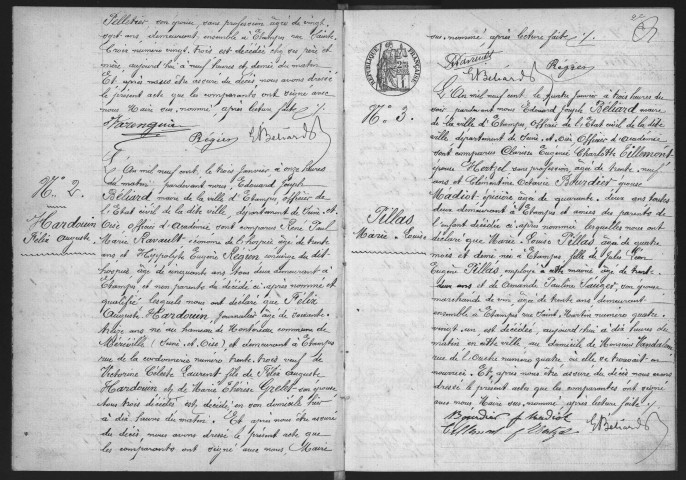 Pelletier son épouse, sans profession âgée de vingt
sept ans, demeurant ensemble à Étampes rue Sainte
Croix numéro vingt trois est décédé chez ses père et
mère, aujourd'hui à neuf heures et demie du matin
Et, après nous être assuré du décès nous avons dressé
le présent acte que les comparants ont signé avec
nous Maire sus nommé, après lecture faite ./.
Régien EBéliard
N° 2.
Hardouin
Félix Auguste
L'An mil neuf cent, le trois Janvier à onze heures
du matin pardevant nous, Edouard Joseph
Béliard, maire de la ville d'Étampes, officier de
l'État civil de la dite ville, département de Seine et
Oise officier d'académie sont comparus René Paul
Marie Ravault économe de l'hospice âgé de trente
ans et Hyppolyte Eugène Régien concierge du dit
hospice âgé de cinquante ans tous deux demeurant à
Étampes et non parents du décédé ci après nommé et
qualifié lesquels nous ont déclaré que Félix
Auguste Hardouin journalier âgé de soixante
treize ans né au hameau de commune de
Méréville (Seine et Oise) et demeurant à Étampes
rue de la cordonnerie numéro trente trois veuf de
Victorine Céleste Laurent fils de Félix Auguste
Hardouin et de Marie Thérèse son épouse
tous trois décédés est décédé en son domicile hier
à dix heures du matin. Et après nous être assuré
du décès nous avons dressé le présent acte que
les comparants ont signé avec nous, Maire
sus nommé, après lecture faite ./.
Ravault Régien
EBéliard
RÉPUBLIQUE FRANÇAISE
N° 3.
Pillas
Marie Louise
L'An mil neuf cent, le quatre Janvier à trois heures du
soir pardevant nous Edouard Joseph Béliard maire
de la ville d'Étampes, officier de l'État civil de la dite
ville département de Seine et Oise Officier d'Académie
sont comparus Clarisse Eugénie Charlotte Tillemont
épouse Hortzel sans profession âgée de trente neuf
ans et Clémentine Octavie Bourdier épouse
Madiot épicière âgée de quarante deux ans toutes
deux demeurant à Étampes et amies des parents de
l'enfant décédée ci après nommée lesquelles nous ont
déclaré que Marie Louise Pillas âgée de quatre
mois et demi née à Étampes fille de Jules Léon
Eugène Pillas, employé âgé de trente
ans et de Amanda Pauline son épouse
marchande de vin, âgée de trente ans demeurant
ensemble à Étampes rue Saint Martin numéro quatre
vingt un est décédée, aujourd'hui à dix heures du
matin en cette ville au domicile de Monsieur
rue de numéro quatre où elle se trouvait en
nourrice. Et, après nous être assuré du décès nous avons
dressé le présent acte que les comparantes ont signé
avec nous Maire sus nommé, après lecture faite ./.
Bourdier f Madiot
EBéliard